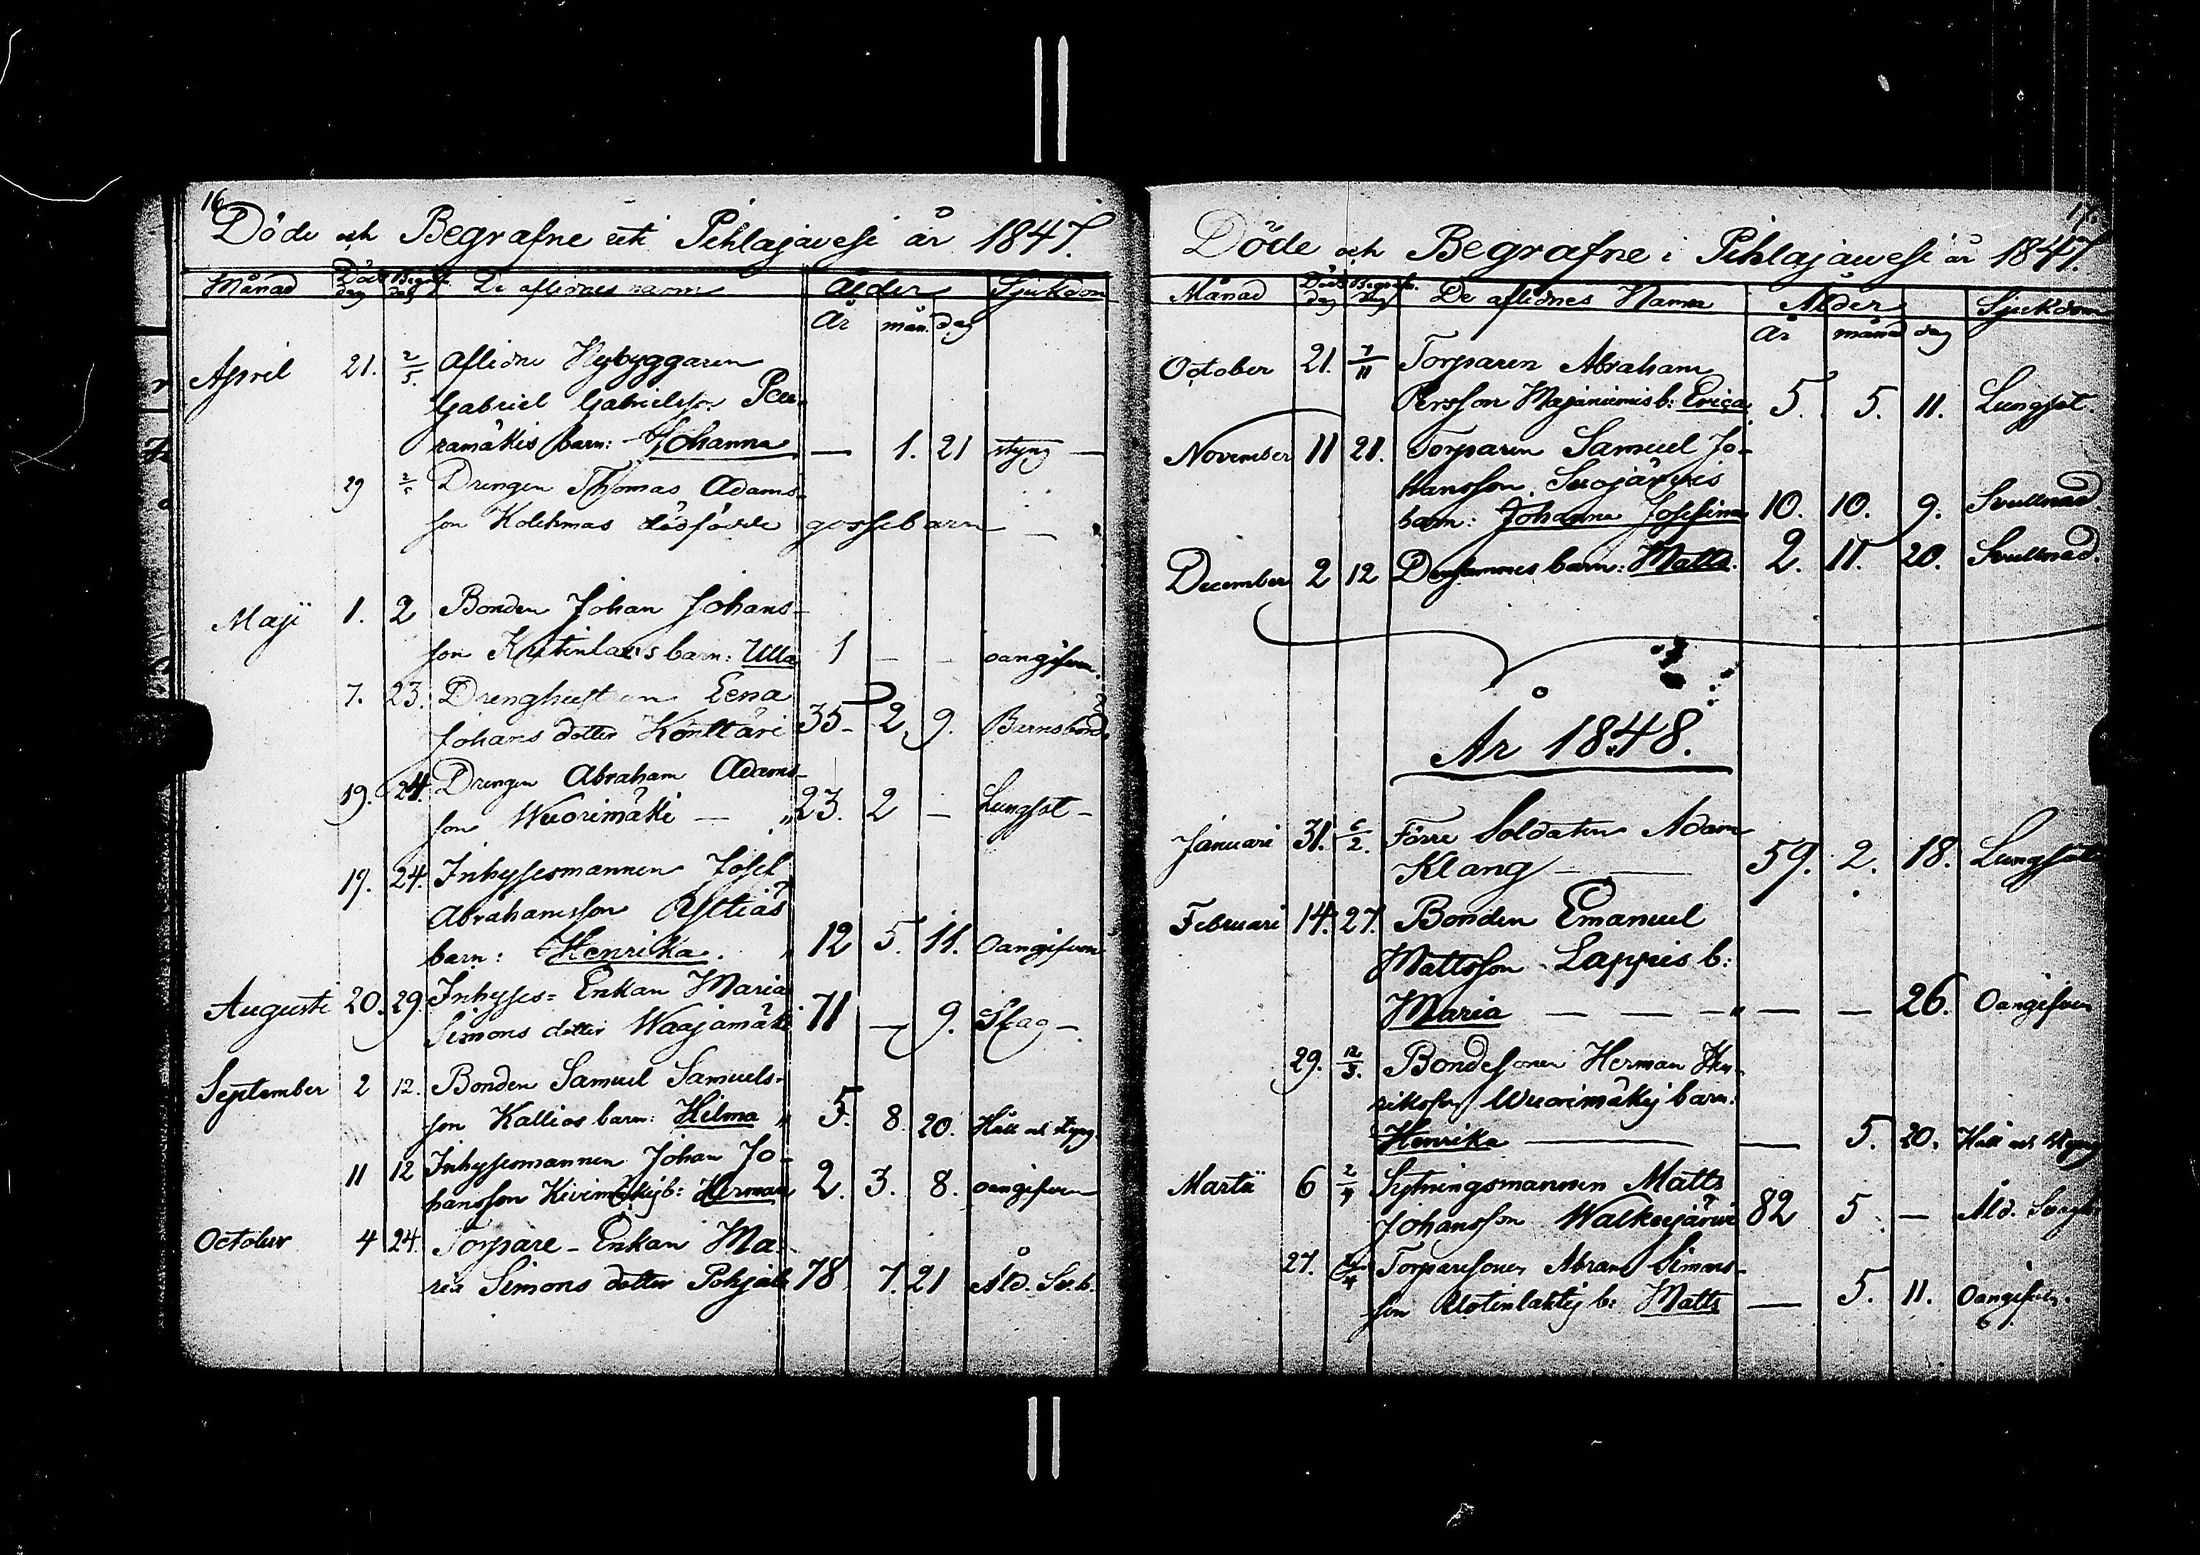 16.
Döde och Begrafne uti Pihlajavesi år 1847.
Månad Död dag Begr. dag De aflidnes namn Ålder Sjukdom
År mån. dag
April 21. 2/5. Aflidne Nybyggaren
Gabriel Gabrielsson Peu-
ramäkis barn: Johanna — 1. 21 styng —
29 2/5 Drengen Thomas Adams-
son Kolehmas dödfödde gossebarn —
Maji 1. 2 Bonden Johan Johans-
son barn: Ulla 1 — — oangifven.
7. 23. Drenghustrun Lena
Johans dotter Konttäri 35 2. 9. Barnsbörd
19. 24. Drengen Abraham Adams-
son Wuorimäki — " 23. 2 — Lungsot —
19. 24. Inhysesmannen Josef
Abrahamsson
barn: Henrika. " 12 5. 11. Oangifven
Augusti 20. 29. Inhyses= Enkan Maria
Simons dotter Waajamäki 71 — 9. Slag —
September 2 12. Bonden Samuel Samuels-
son Kallios barn: Hilma " 5. 8. 20. Håll och styng.
11 12 Inhysesmannen Johan Jo-
hansson Kivimäkis b: Herman 2. 3. 8. oangifven
October 4 24. Torpare-Enkan Ma-
ria Simons dotter 78 7. 21 Åld. Sv.h.
17.
Döde och Begrafne i Pihlajavesi år 1847.
Månad Död dag Begrafn. dag De aflidnes Namn Ålder Sjukdom
År månad dag
October 21. 7/11 Torparen Abraham
Persson Majaniemis b: Erica 5. 5. 11. Lungsot.
November 11 21. Torparen Samuel Jo-
hansson Suojärvis
barn: Johanna Josefina 10. 10. 9. Svullnad.
December 2 12 Densammes barn: Matts. 2. 11. 20. Svullnad.
År 1848.
Januari 31. 6/2. Förre Soldaten Adam
Klang — — 59. 2. 18. Lungsot
Februari 14. 27. Bonden Emanuel
Mattsson Lappis b:
Maria — — — " — — 26. Oangifven
29. 12/3. Bondesonen Herman Hen-
riksson Wuorimäkis barn:
Henrika — — 5. 20. Håll och styng
Martii 6 2/4 Sytningsmannen Matts
Johansson Walkeejärvi 82 5 — Åld. Svagh.
27. Torparesonen Abram Simons-
son b: Matts — 5. 11. Oangifven.